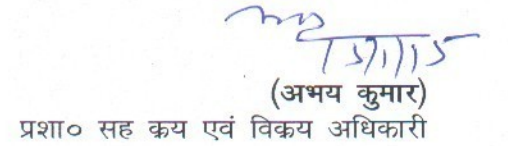 (अभय कुमार)
प्रशा० सह क्रय एवं विक्रय अधिकारी